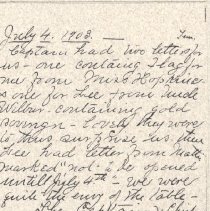 July 4. 1903.
Captain had two letters for
us - one containing flag for
me from Mrs E Hopkins
& one for Lee from Uncle
Wilbur - containing gold
sovereign - Lovely they were
to thus surprise us then
Lee had letter from
marked not to be opened
until July 4th - We were
quite the envy of the table -
The Captain